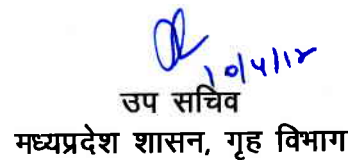 10/4/12
उप सचिव
मध्यप्रदेश शासन, गृह विभाग